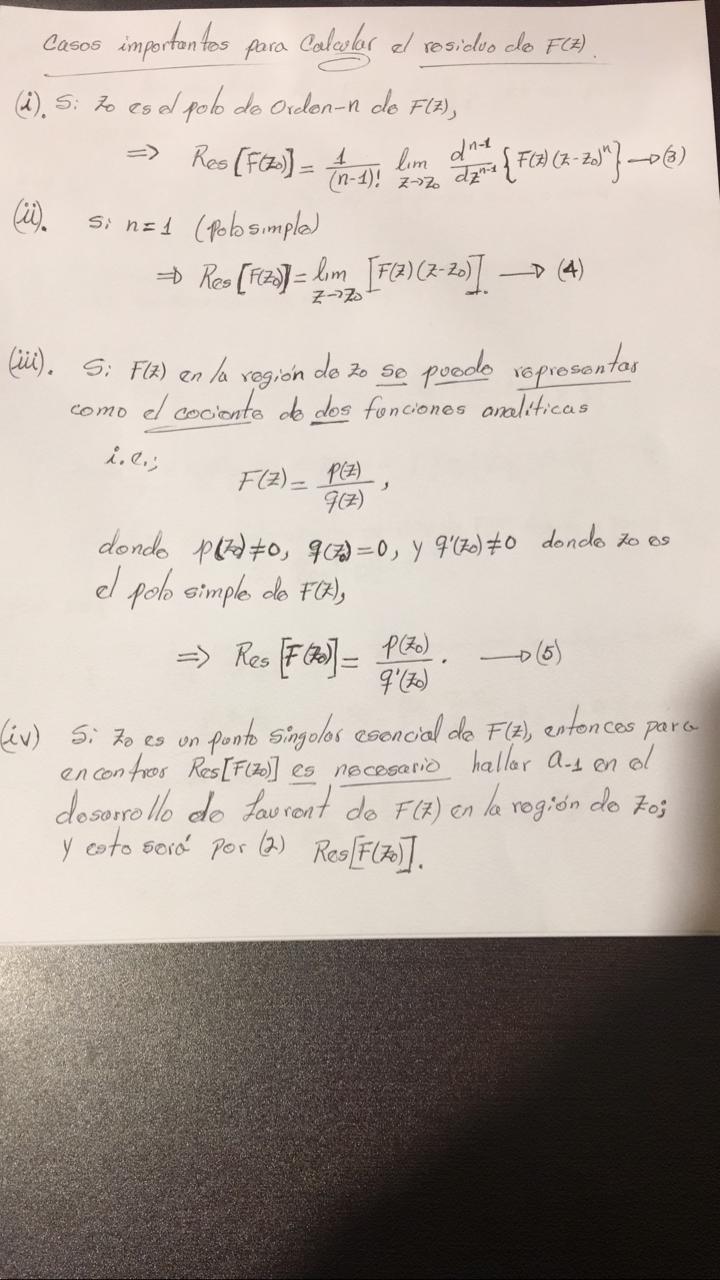 Casos importantes para Calcular el residuo de F(z).
(i). Si z₀ es el polo de Orden-n de F(z),
=> Res[F(z₀)] = 1/(n-1)! lim z→z₀ dⁿ⁻¹/dzⁿ⁻¹ {F(z)(z-z₀)ⁿ} →(3)
(ii). Si n=1 (polo simple)
=> Res[F(z₀)] = lim z→z₀ [F(z)(z-z₀)]. → (4)
(iii). Si F(z) en la región de z₀ se puede representar
como el cociente de dos funciones analíticas
i.e.;
F(z) = p(z)/q(z),
donde p(z₀)≠0, q(z₀)=0, y q'(z₀)≠0 donde z₀ es
el polo simple de F(z),
=> Res[F(z₀)] = p(z₀)/q'(z₀). →(5)
(iv) Si z₀ es un punto singular esencial de F(z), entonces para
encontrar Res[F(z₀)] es necesario hallar a₋₁ en el
desarrollo de Laurent de F(z) en la región de z₀;
y esto será por (2) Res[F(z₀)].